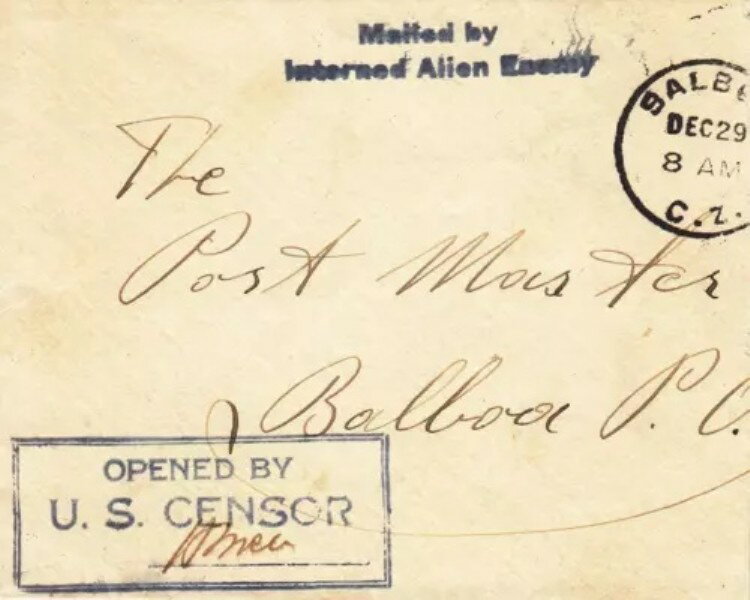 Mailed by
Interned Alien Enemy
BALBO
DEC 29
8 AM
C.Z.
The
Post Master
Balboa P.O.
OPENED BY
U. S. CENSOR